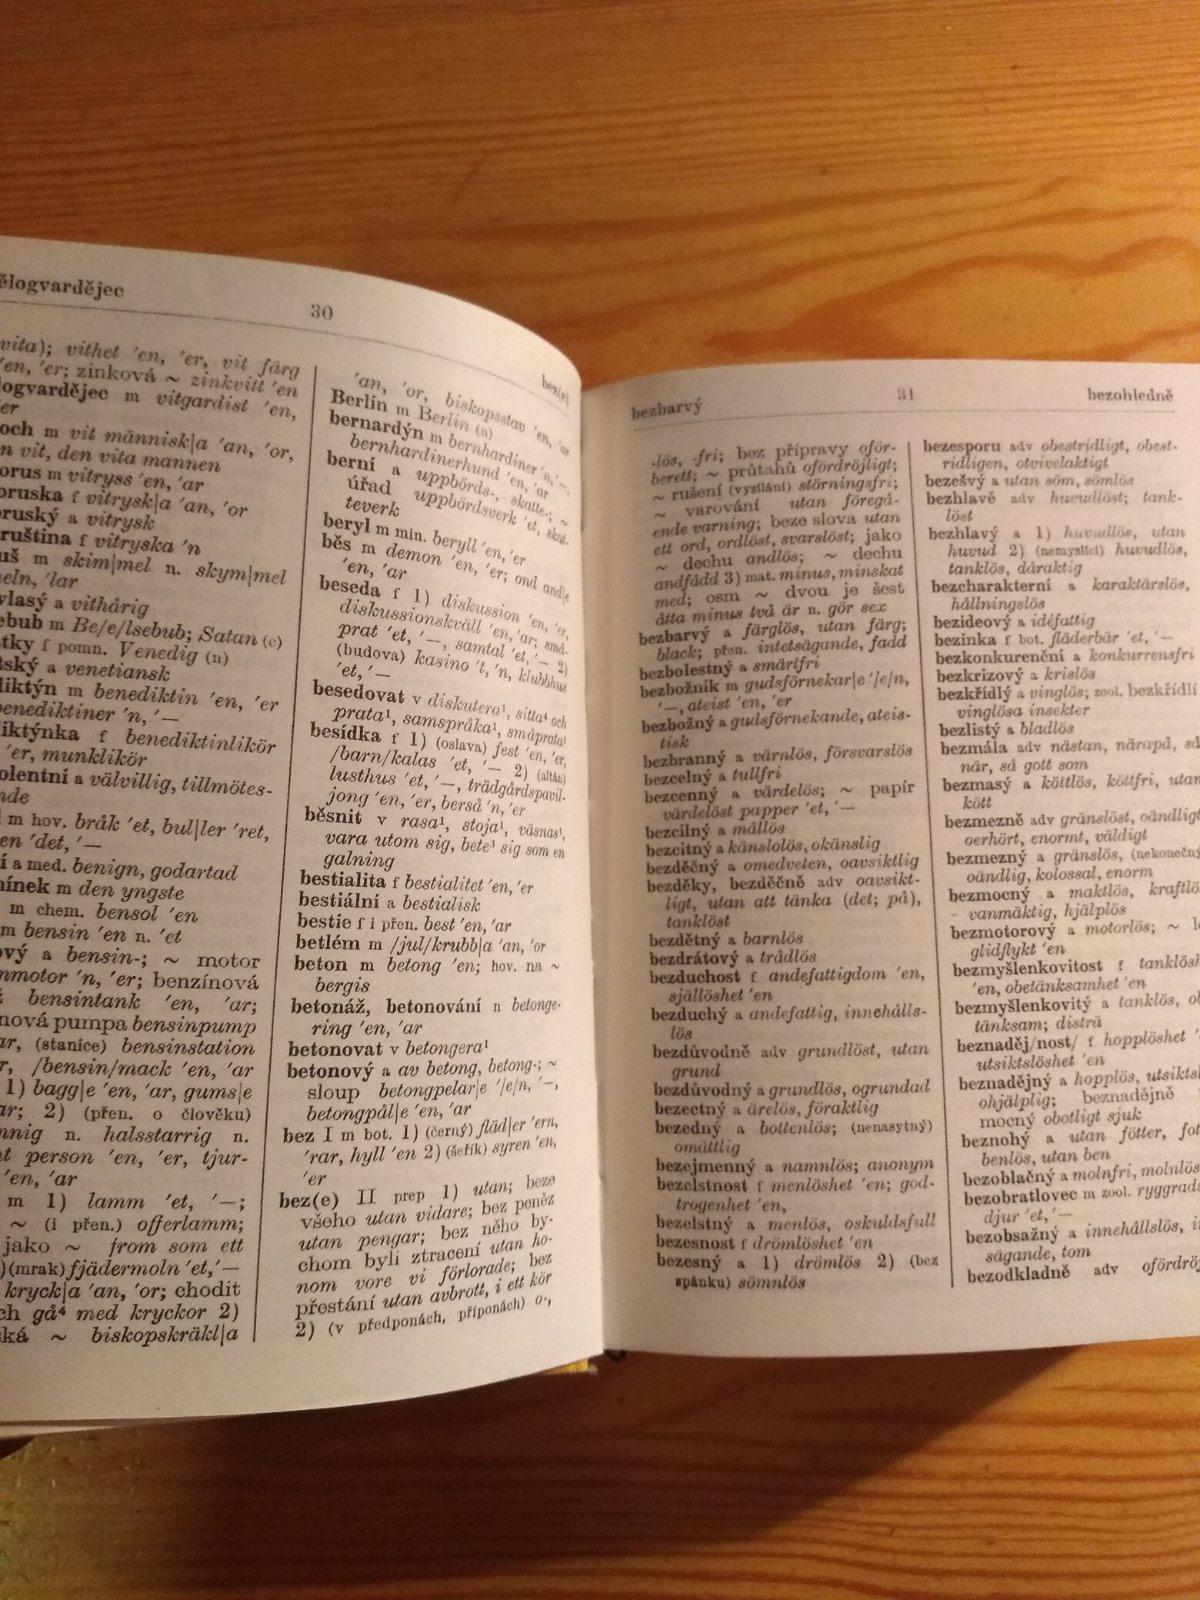 ělogvardějec
30
bez(e)
vita); vithet 'en, 'er, vit färg
'en, 'er; zinková ~ zinkvitt 'en
logvardějec m vitgardist 'en,
'er
och m vit människ|a 'an, 'or,
n vit, den vita mannen
orus m vitryss 'en, 'ar
oruska f vitrysk|a 'an, 'or
oruský a vitrysk
ruština f vitryska 'n
uš m skim|mel n. skym|mel
meln, 'lar
vlasý a vithårig
ebub m Be/e/lsebub; Satan (c)
átky f pomn. Venedig (n)
tský a venetiansk
diktýn m benediktin 'en, 'er
benediktiner 'n, '—
diktýnka f benediktinlikör
'er, munklikör
olentní a välvillig, tillmötes-
nde
m hov. bråk 'et, bul|ler 'ret,
en 'det, '—
í a med. benign, godartad
mínek m den yngste
m chem. bensol 'en
m bensin 'en n. 'et
ový a bensin-; ~ motor
nmotor 'n, 'er; benzínová
bensintank 'en, 'ar;
nová pumpa bensinpump
ar, (stanice) bensinstation
r, /bensin/mack 'en, 'ar
1) bagg|e 'en, 'ar, gums|e
ar; 2) (přen. o člověku)
nnig n. halsstarrig n.
t person 'en, 'er, tjur-
'en, 'ar
m 1) lamm 'et, '—;
~ (i přen.) offerlamm;
jako ~ from som ett
) (mrak) fjädermoln 'et, '—
kryck|a 'an, 'or; chodit
ch gå⁴ med kryckor 2)
ská ~ biskopskräkl|a
'an, 'or, biskopsstav 'en, 'ar
Berlín m Berlin (n)
bernardýn m bernhardiner 'n, '—,
bernhardinerhund 'en, 'ar
berní a uppbörds-, skatte-; ~
úřad uppbördsverk 'et, skat-
teverk
beryl m min. beryll 'en, 'er
běs m demon 'en, 'er; ond and|e
'en, 'ar
beseda f 1) diskussion 'en, 'er,
diskussionskväll 'en, 'ar; små-
prat 'et, '—, samtal 'et, '— 2)
(budova) kasino 't, 'n, klubbhus
'et, '—
besedovat v diskutera¹, sitta⁴ och
prata¹, samspråka¹, småprata¹
besídka f 1) (oslava) fest 'en, 'er,
/barn/kalas 'et, '— 2) (altán)
lusthus 'et, '—, trädgårdspavil-
jong 'en, 'er, berså 'n, 'er
běsnit v rasa¹, stoja¹, väsnas¹,
vara utom sig, bete³ sig som en
galning
bestialita f bestialitet 'en, 'er
bestiální a bestialisk
bestie f i přen. best 'en, 'ar
betlém m /jul/krubb|a 'an, 'or
beton m betong 'en; hov. na ~
bergis
betonáž, betonování n betonge-
ring 'en, 'ar
betonovat v betongera¹
betonový a av betong, betong-; ~
sloup betongpelar|e '/e/n, '—,
betongpål|e 'en, 'ar
bez I m bot. 1) (černý) fläd|er 'ern,
'rar, hyll 'en 2) (šeřík) syren 'en,
'er
bez(e) II prep 1) utan; beze
všeho utan vidare; bez peněz
utan pengar; bez něho by-
chom byli ztraceni utan ho-
nom vore vi förlorade; bez
přestání utan avbrott, i ett kör
2) (v předponách, příponách) o-,
bezbarvý
31
bezohledně
-lös, -fri; bez přípravy oför-
berett; ~ průtahů ofördröjligt;
~ rušení (vysílání) störningsfri;
~ varování utan föregå-
ende varning; beze slova utan
ett ord, ordlöst, svarslöst; jako
~ dechu andlös; ~ dechu
andfådd 3) mat. minus, minskat
med; osm ~ dvou je šest
åtta minus två är n. gör sex
bezbarvý a färglös, utan färg;
black; přen. intetsägande, fadd
bezbolestný a smärtfri
bezbožník m gudsförnekar|e '/e/n,
'—, ateist 'en, 'er
bezbožný a gudsförnekande, ateis-
tisk
bezbranný a värnlös, försvarslös
bezcelný a tullfri
bezcenný a värdelös; ~ papír
värdelöst papper 'et, '—
bezcílný a mållös
bezcitný a känslolös, okänslig
bezděčný a omedveten, oavsiktlig
bezděky, bezděčně adv oavsikt-
ligt, utan att tänka (det; på),
tanklöst
bezdětný a barnlös
bezdrátový a trådlös
bezduchost f andefattigdom 'en,
själlöshet 'en
bezduchý a andefattig, innehålls-
lös
bezdůvodně adv grundlöst, utan
grund
bezdůvodný a grundlös, ogrundad
bezectný a ärelös, föraktlig
bezedný a bottenlös; (nenasytný)
omättlig
bezejmenný a namnlös; anonym
bezelstnost f menlöshet 'en; god-
trogenhet 'en,
bezelstný a menlös, oskuldsfull
bezesnost f drömlöshet 'en
bezesný a 1) drömlös 2) (bez
spánku) sömnlös
bezesporu adv obestridligt, obest-
ridligen, otvivelaktigt
bezešvý a utan söm, sömlös
bezhlavě adv huvudlöst; tank-
löst
bezhlavý a 1) huvudlös, utan
huvud 2) (nemyslící) huvudlös,
tanklös, dåraktig
bezcharakterní a karaktärslös,
hållningslös
bezideový a idéfattig
bezinka f bot. fläderbär 'et, '—
bezkonkurenční a konkurrensfri
bezkrizový a krislös
bezkřídlý a vinglös; zool. bezkřídlí
vinglösa insekter
bezlistý a bladlös
bezmála adv nästan, närapå, så
när, så gott som
bezmasý a köttlös, köttfri, utan
kött
bezmezně adv gränslöst, oändligt
oerhört, enormt, väldigt
bezmezný a gränslös, (nekonečný
oändlig, kolossal, enorm
bezmocný a maktlös, kraftlö
vanmäktig, hjälplös
bezmotorový a motorlös; ~ l
glidflykt 'en
bezmyšlenkovitost f tanklösh
'en, obetänksamhet 'en
bezmyšlenkovitý a tanklös, o
tänksam; disträ
beznaděj/nost/ f hopplöshet '
utsiktslöshet 'en
beznadějný a hopplös, utsiktsl
ohjälplig; beznadějně
mocný obotligt sjuk
beznohý a utan fötter, fot
benlös, utan ben
bezoblačný a molnfri, molnlös
bezobratlovec m zool. ryggrads
djur 'et, '—
bezobsažný a innehållslös, in
sägande, tom
bezodkladně adv ofördröj